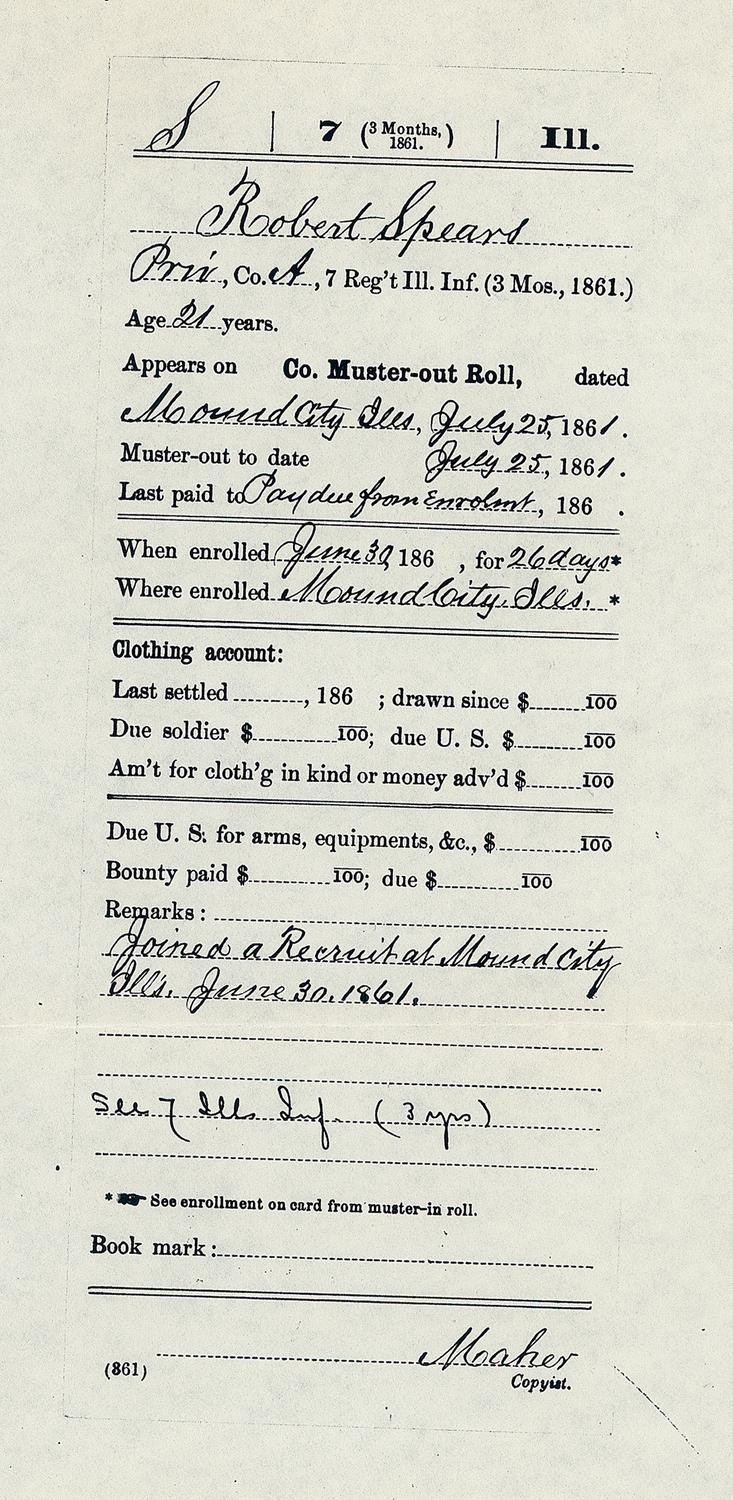 S | 7 (3 Months, 1861.) | Ill.
Robert Spears
Priv, Co. A, 7 Reg't Ill. Inf. (3 Mos., 1861.)
Age 21 years.
Appears on Co. Muster-out Roll, dated
Mound City Ills, July 25, 1861.
Muster-out to date July 25, 1861.
Last paid to Pay due from Enrolmt, 186 .
When enrolled June 30, 186 , for 26 days*
Where enrolled Mound City, Ills. *
Clothing account:
Last settled , 186 ; drawn since $ 100
Due soldier $ 100; due U. S. $ 100
Am't for cloth'g in kind or money adv'd $ 100
Due U. S. for arms, equipments, &c., $ 100
Bounty paid $ 100; due $ 100
Remarks:
Joined a Recruit at Mound City
Ills. June 30. 1861.
See 7 Ills Inf. (3 yrs)
* See enrollment on card from muster-in roll.
Book mark:
Maher
(861) Copyist.